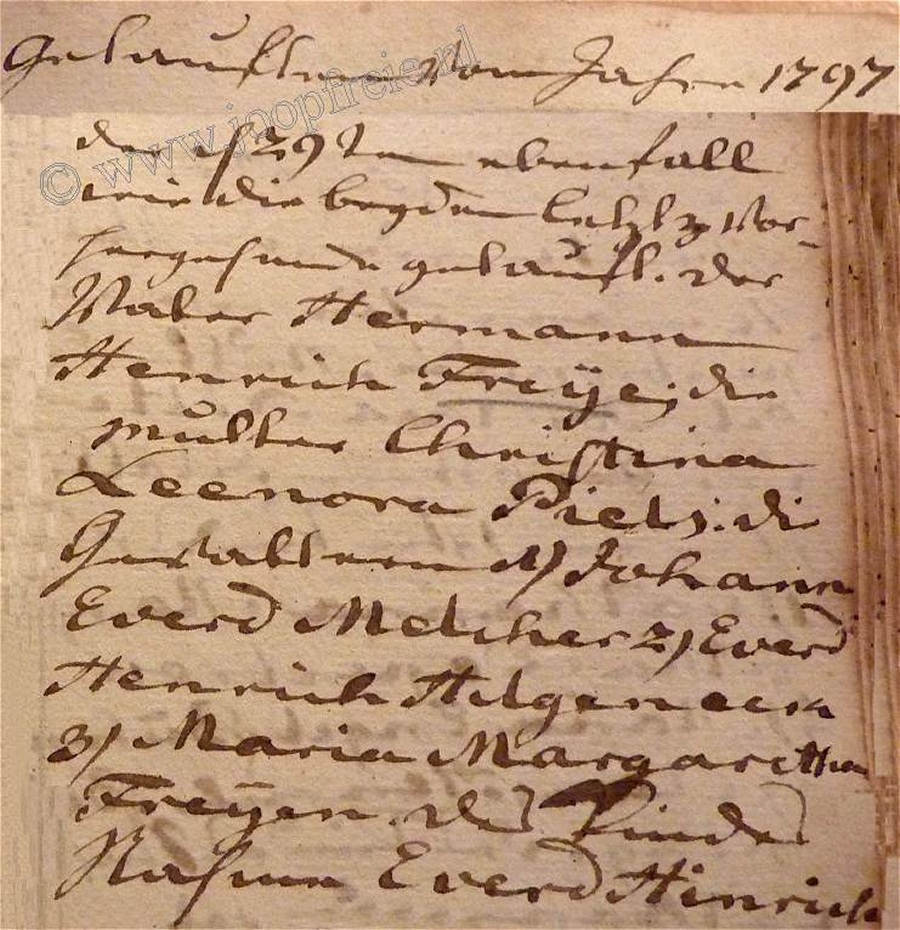 Getauften vom Jahre 1797
© www.jaapfreie.nl
den 29ten ebenfall
wie die beyden letzt vor-
hergehende getauft. der
Vater Hermann
Henrich Freÿe; die
Mutter Christina
Leenora Piels; die
Gevattern 1) Johann
Everd Melcher 2) Everd
Henrich Hilgeneck
3) Maria Margaretha
Freÿen. des Kindes
Nahme Everd Hinrich